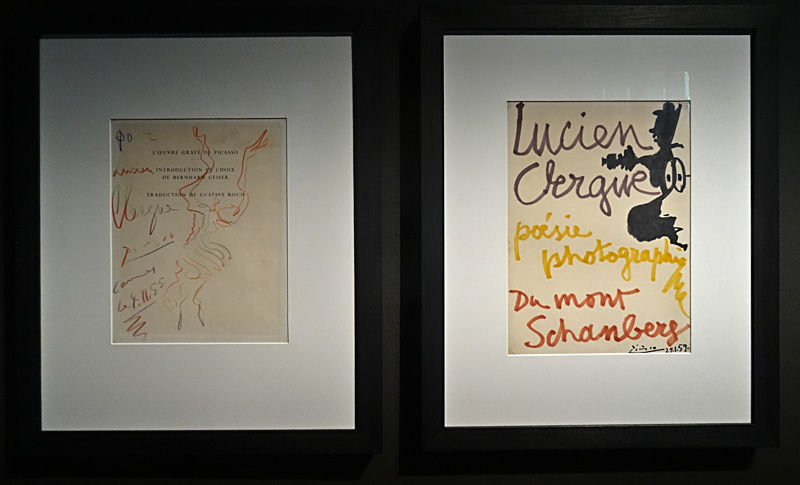 L'ŒUVRE GRAVÉ DE PICASSO
INTRODUCTION ET CHOIX
DE BERNHARD GEISER
TRADUCTION DE GUSTAVE ROUD
Lucien
Clergue
Picasso
Cannes
le 4.11.55
Lucien
Clergue
poésie
photographie
Du mont
Schauberg
Picasso 29.1.59.